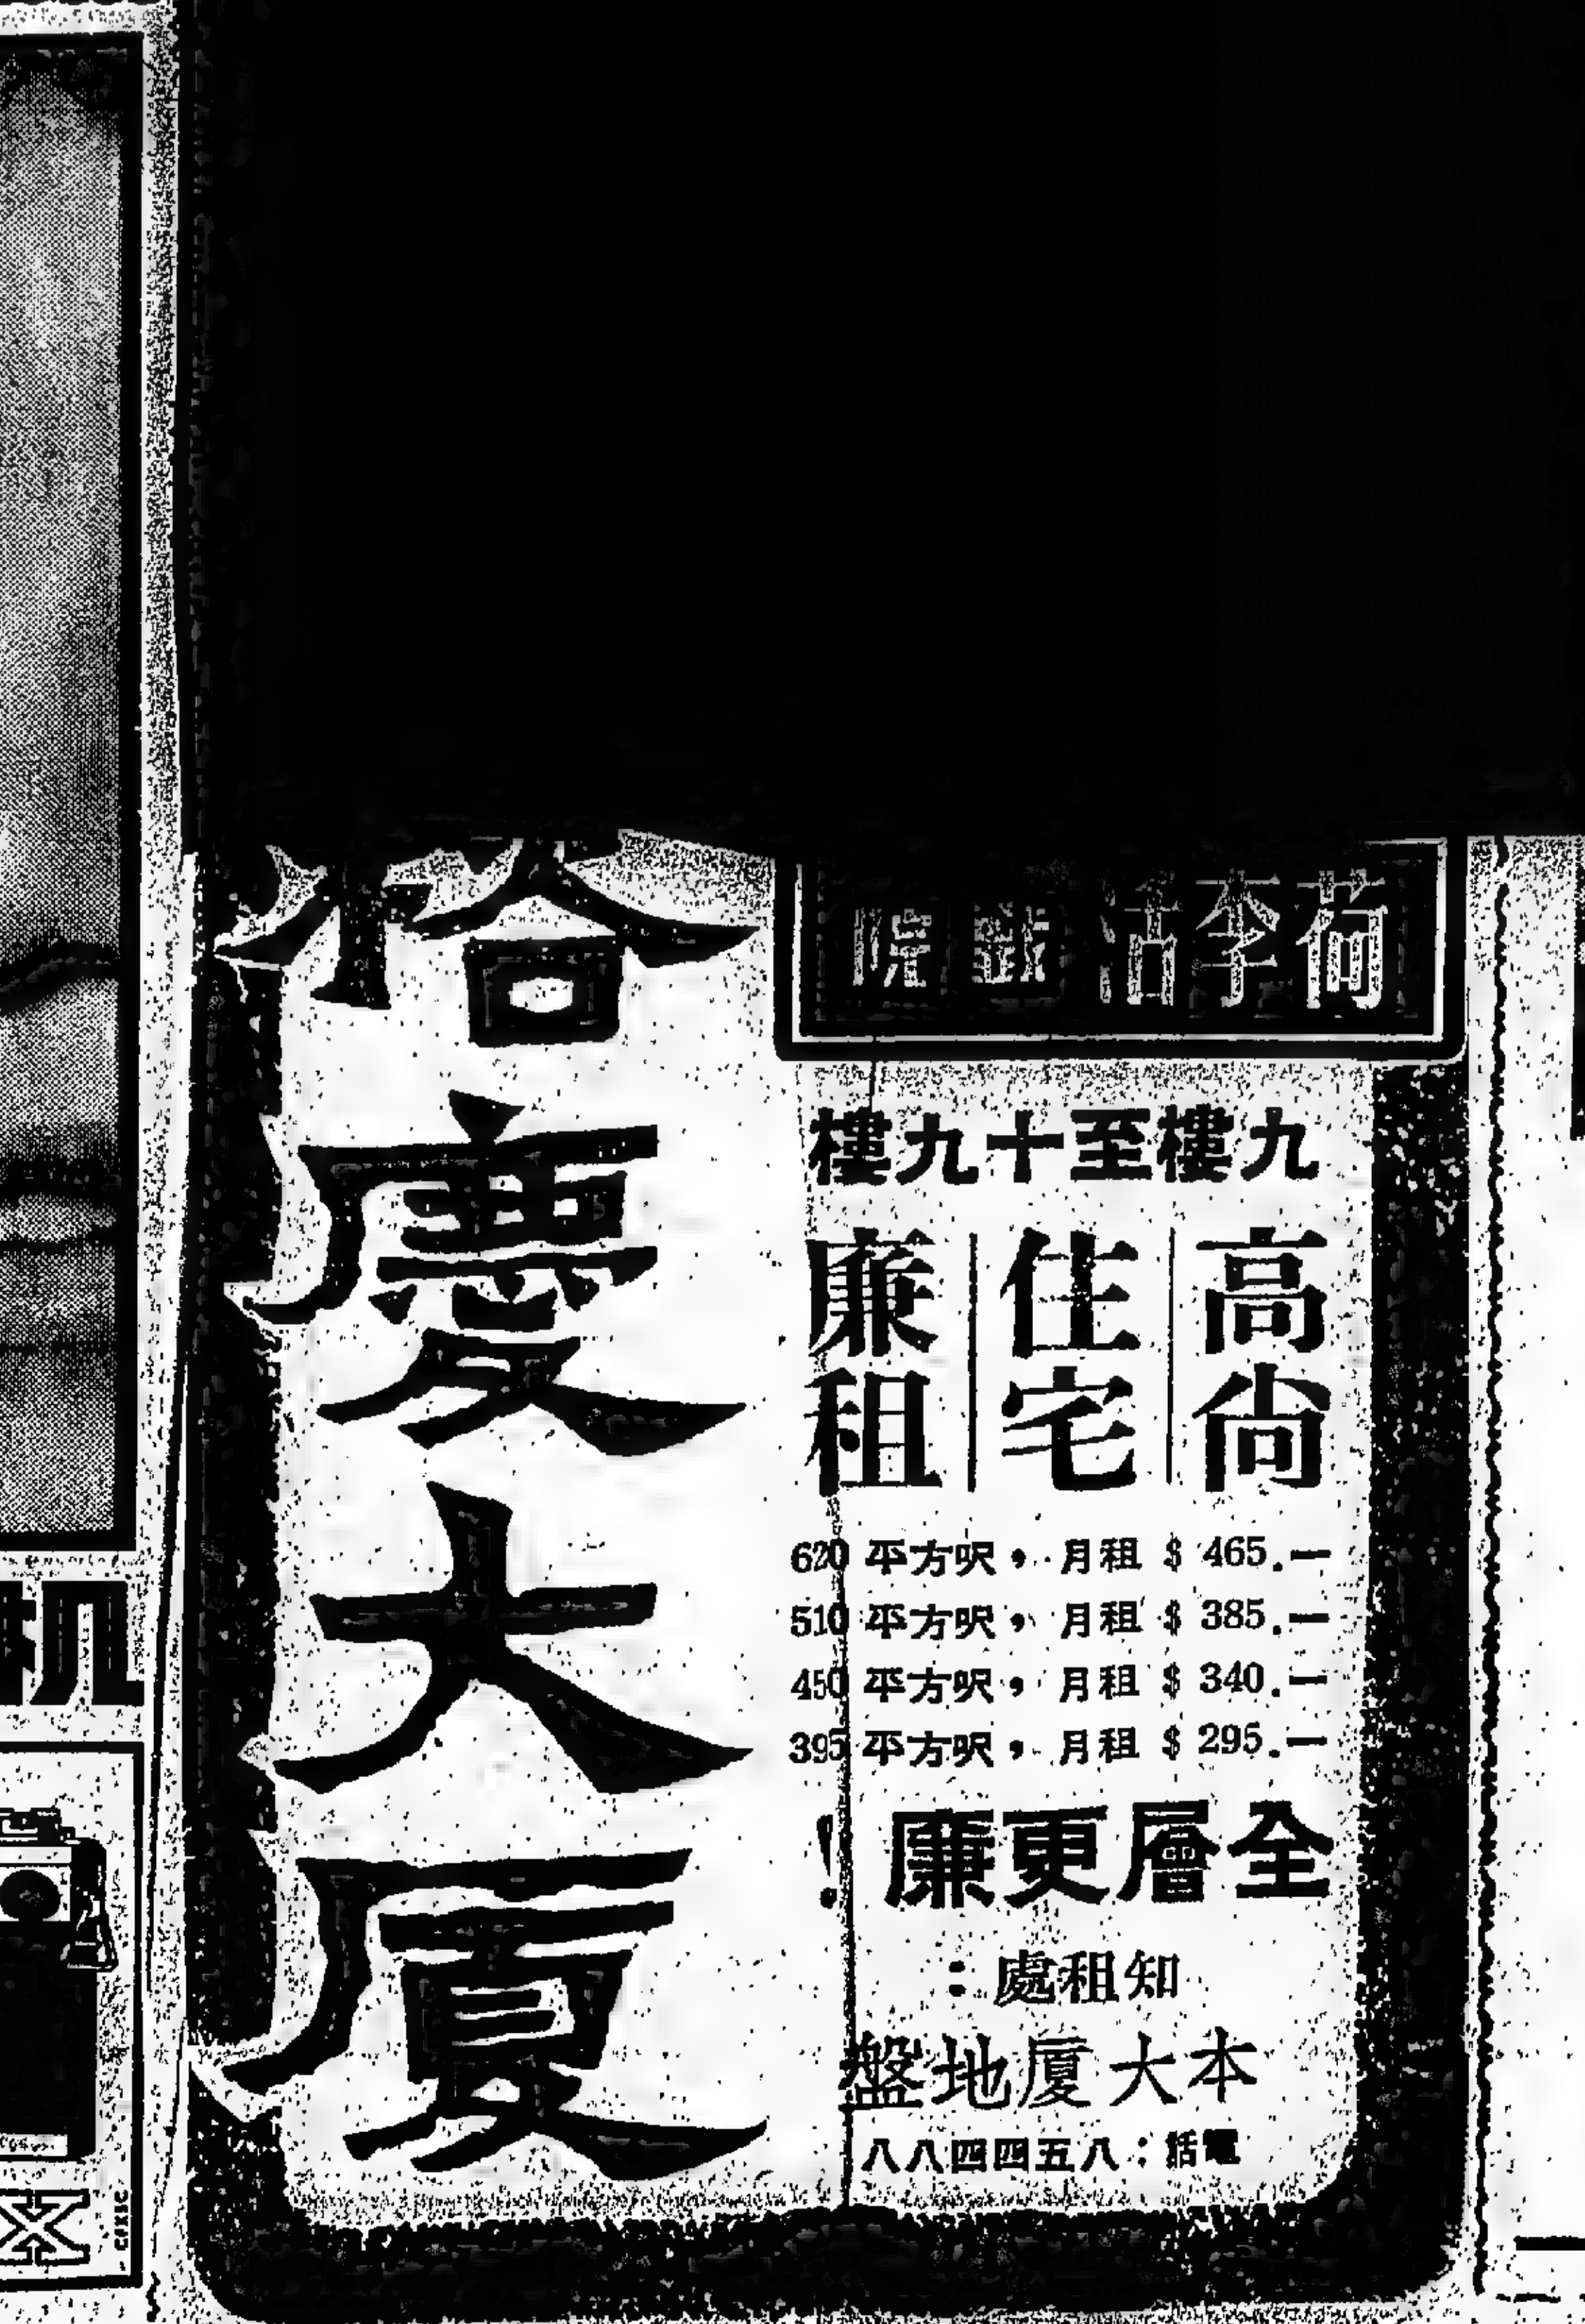 荷李活戲院
裕慶大厦
九樓至十九樓
高尚
住宅
廉租
620 平方呎，月租 $ 465.—
510 平方呎，月租 $ 385.—
450 平方呎，月租 $ 340.—
395 平方呎，月租 $ 295.—
全層更廉！
知租處：
本大厦地盤
電話：八五四四八八
机